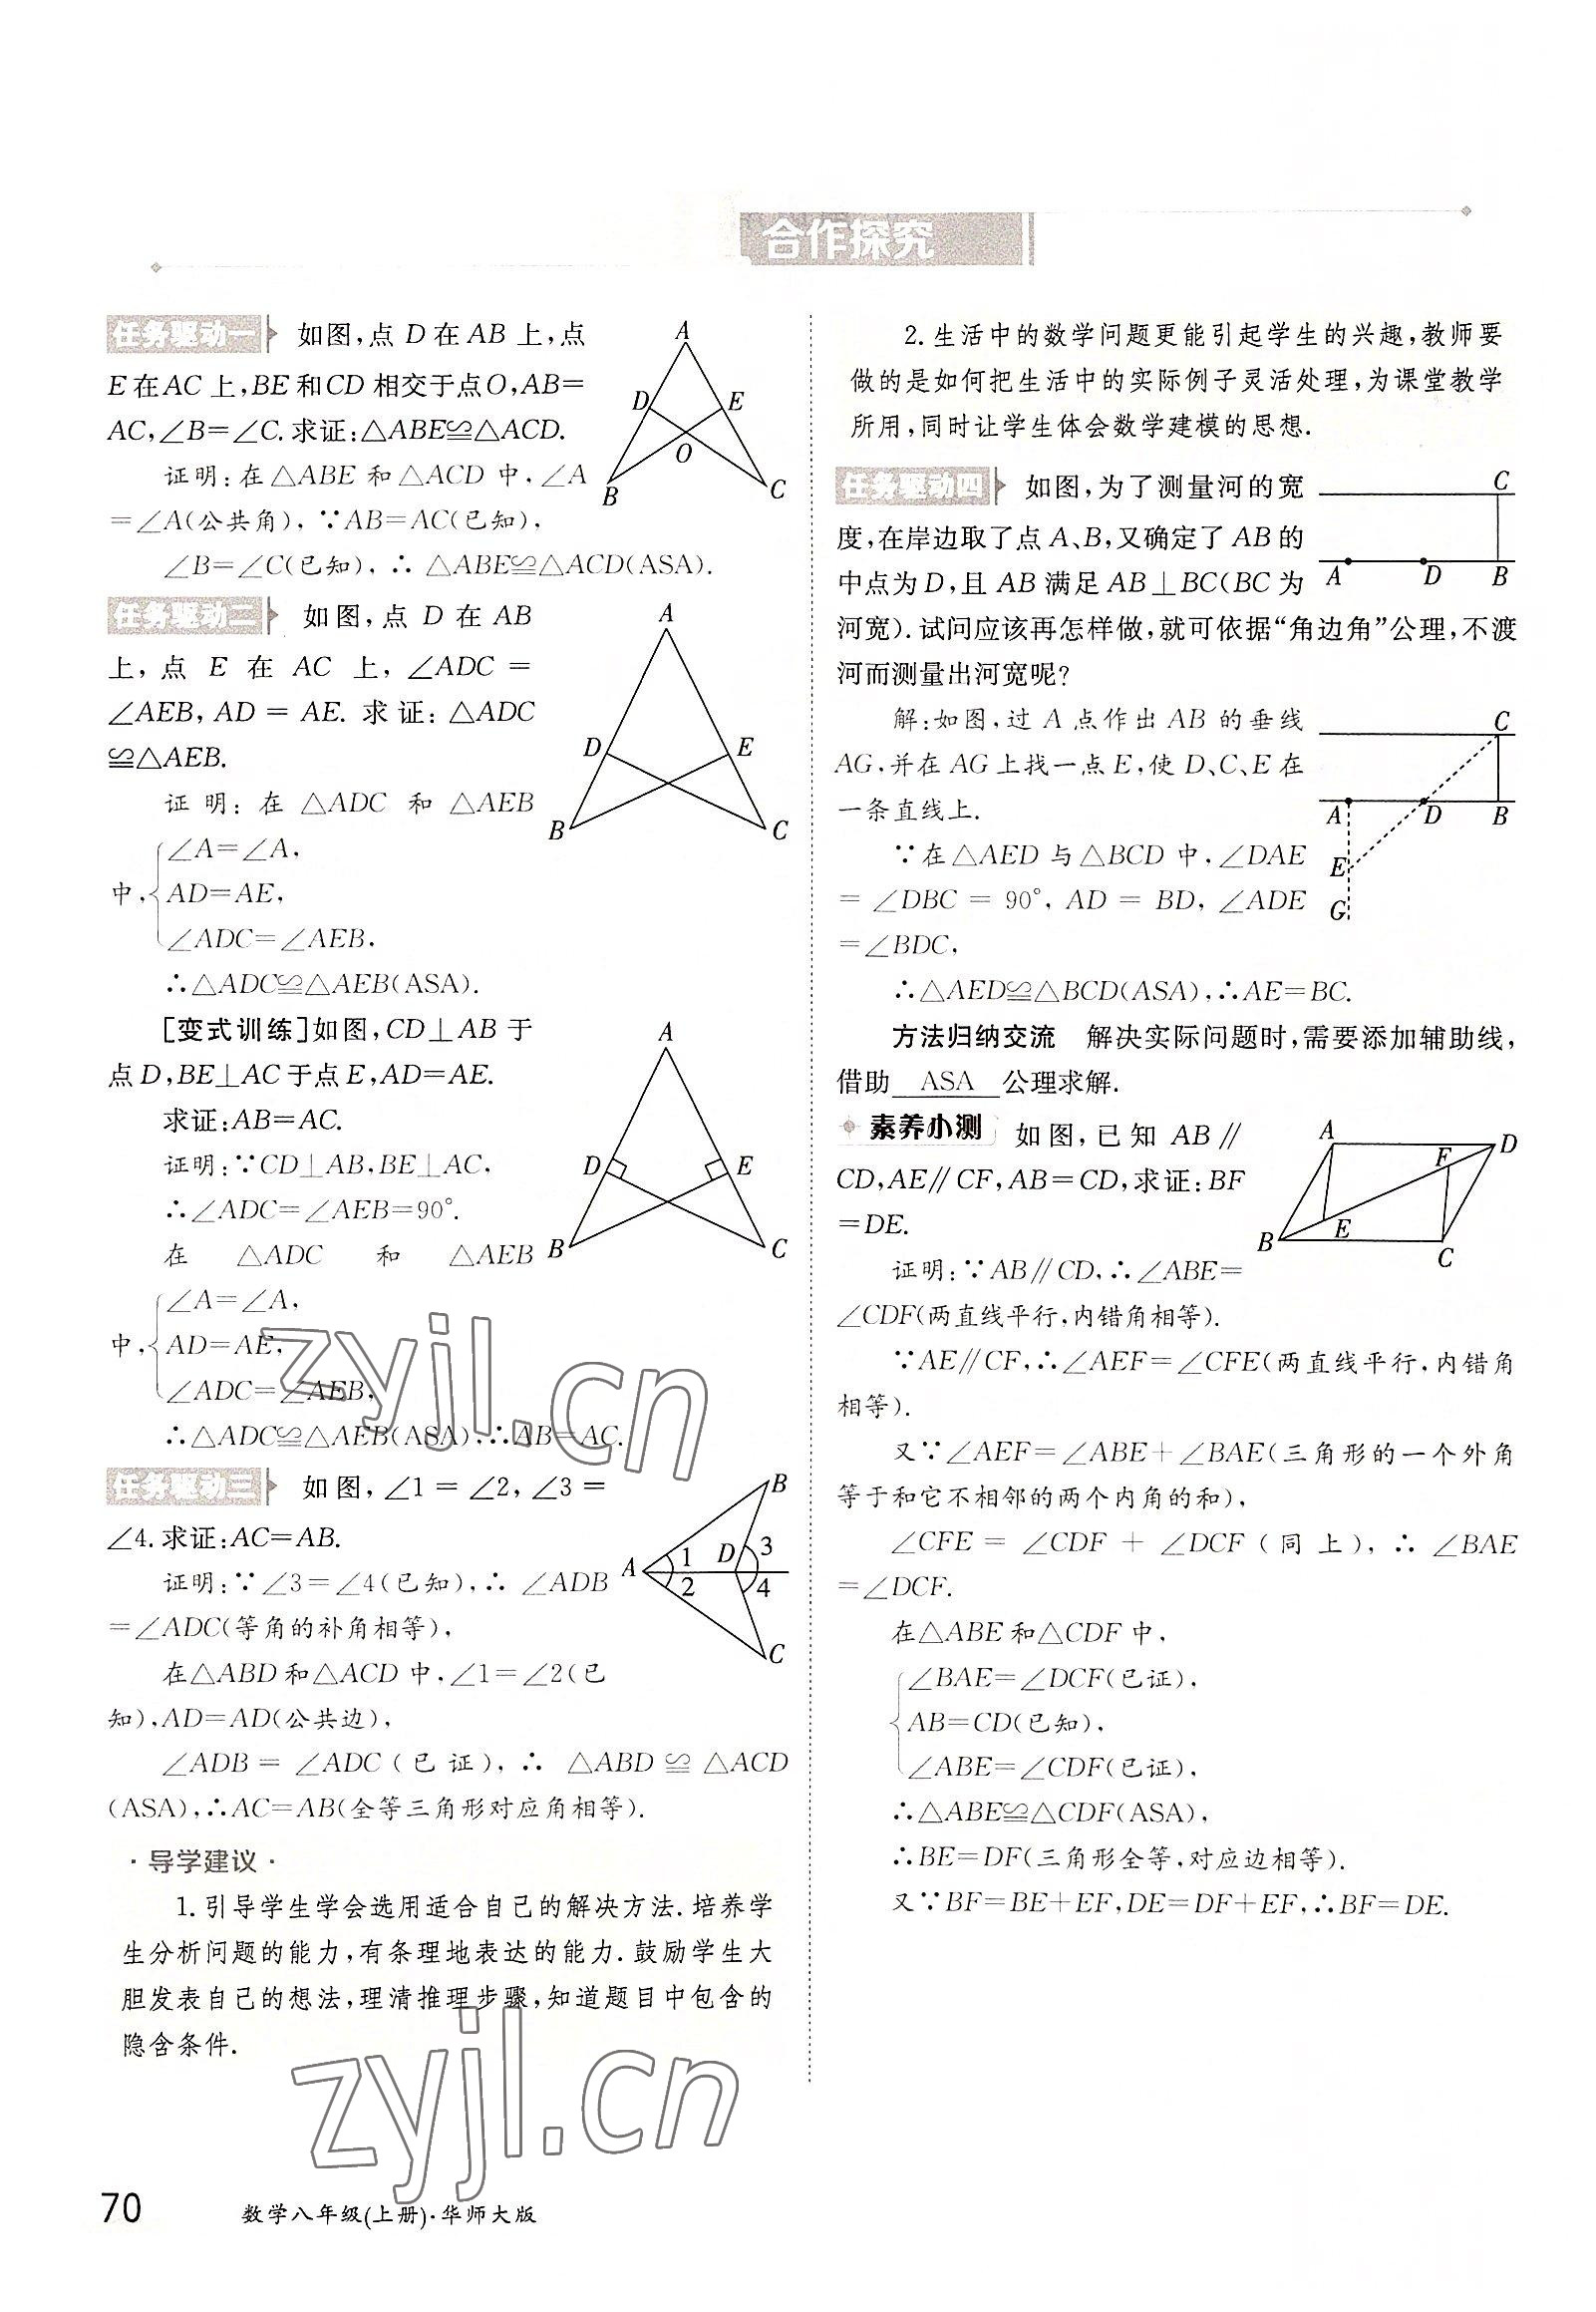 合作探究
任务驱动一 如图,点 D 在 AB 上,点
E 在 AC 上,BE 和 CD 相交于点 O,AB=
AC,∠B=∠C. 求证:△ABE≌△ACD.
证明:在△ABE 和△ACD 中,∠A
=∠A(公共角),∵AB=AC(已知),
∠B=∠C(已知),∴△ABE≌△ACD(ASA).
A
D
E
O
B
C
任务驱动二 如图,点 D 在 AB
上,点 E 在 AC 上,∠ADC =
∠AEB, AD = AE. 求证:△ADC
≌△AEB.
证明:在 △ADC 和 △AEB
中,{∠A=∠A,
AD=AE,
∠ADC=∠AEB,
∴△ADC≌△AEB(ASA).
A
D
E
B
C
[变式训练]如图,CD⊥AB 于
点 D,BE⊥AC 于点 E,AD=AE.
求证:AB=AC.
证明:∵CD⊥AB,BE⊥AC,
∴∠ADC=∠AEB=90°.
在 △ADC 和 △AEB
中,{∠A=∠A,
AD=AE,
∠ADC=∠AEB,
∴△ADC≌△AEB(ASA),∴AB=AC.
A
D
E
B
C
任务驱动三 如图,∠1 = ∠2,∠3 =
∠4. 求证:AC=AB.
证明:∵∠3=∠4(已知),∴∠ADB
=∠ADC(等角的补角相等),
在△ABD 和△ACD 中,∠1=∠2(已
知),AD=AD(公共边),
∠ADB = ∠ADC(已证),∴ △ABD ≌ △ACD
(ASA),∴AC=AB(全等三角形对应角相等).
B
A
1
2
D
3
4
C
·导学建议·
1. 引导学生学会选用适合自己的解决方法. 培养学
生分析问题的能力,有条理地表达的能力. 鼓励学生大
胆发表自己的想法,理清推理步骤,知道题目中包含的
隐含条件.
2. 生活中的数学问题更能引起学生的兴趣,教师要
做的是如何把生活中的实际例子灵活处理,为课堂教学
所用,同时让学生体会数学建模的思想.
任务驱动四 如图,为了测量河的宽
度,在岸边取了点 A、B,又确定了 AB 的
中点为 D,且 AB 满足 AB⊥BC(BC 为
河宽). 试问应该再怎样做,就可依据“角边角”公理,不渡
河而测量出河宽呢?
C
A
D
B
解:如图,过 A 点作出 AB 的垂线
AG,并在 AG 上找一点 E,使 D、C、E 在
一条直线上.
∵在△AED 与△BCD 中,∠DAE
= ∠DBC = 90°, AD = BD, ∠ADE
=∠BDC,
∴△AED≌△BCD(ASA),∴AE=BC.
C
A
D
B
E
G
方法归纳交流 解决实际问题时,需要添加辅助线,
借助 ASA 公理求解.
素养小测 如图,已知 AB∥
CD,AE∥CF,AB=CD,求证:BF
=DE.
证明:∵AB∥CD,∴∠ABE=
∠CDF(两直线平行,内错角相等).
∵AE∥CF,∴∠AEF=∠CFE(两直线平行,内错角
相等).
又∵∠AEF=∠ABE+∠BAE(三角形的一个外角
等于和它不相邻的两个内角的和),
∠CFE = ∠CDF + ∠DCF(同上),∴ ∠BAE
=∠DCF.
在△ABE 和△CDF 中,
{∠BAE=∠DCF(已证),
AB=CD(已知),
∠ABE=∠CDF(已证),
∴△ABE≌△CDF(ASA),
∴BE=DF(三角形全等,对应边相等).
又∵BF=BE+EF,DE=DF+EF,∴BF=DE.
A
F
D
B
E
C
zyjl.cn
zyjl.cn
70 数学八年级(上册)·华师大版